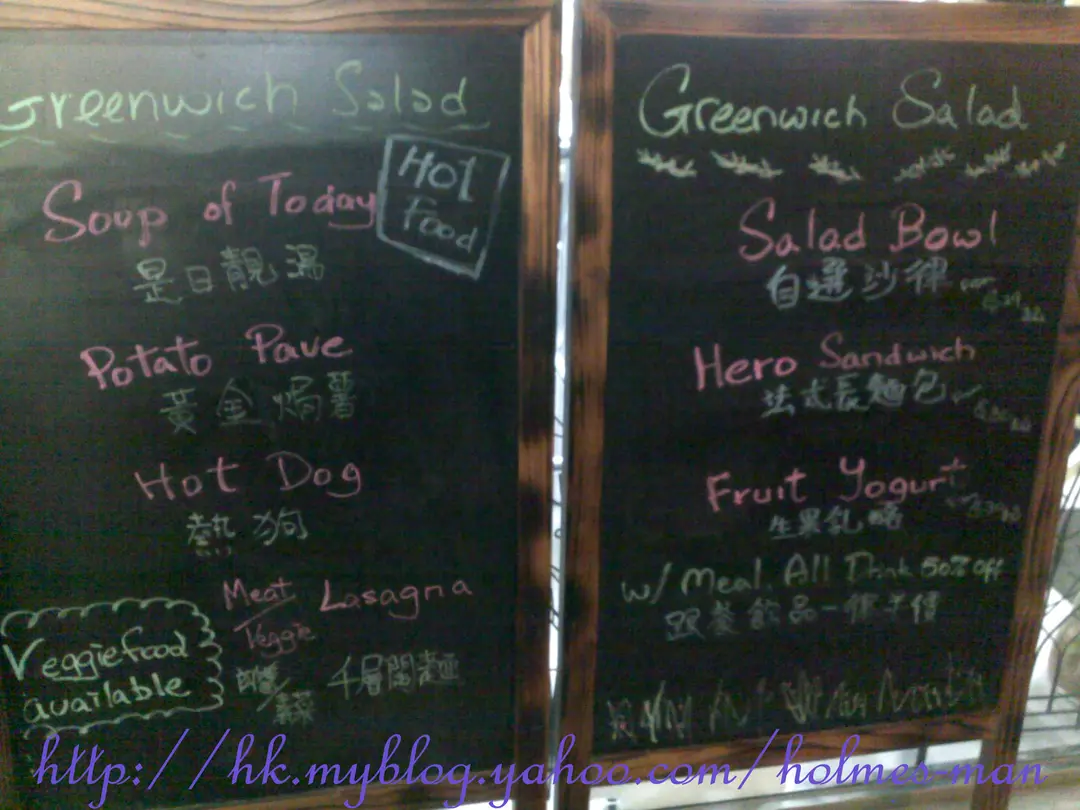 Greenwich Salad
HOT
Food
Soup of Today
是日靚湯
Potato Pave
黃金焗薯
Hot Dog
熱狗
Meat
Veggie
Lasagna
千層闊麵
Veggie food
available
Greenwich Salad
Salad Bowl
自選沙律
Hero Sandwich
法式長麵包
Fruit Yogurt
生果乳酪
w/ Meal. All Drink 50% off
跟餐飲品一律半價
http://hk.myblog.yahoo.com/holmes-man